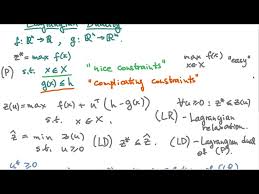 Lagrangian Duality
f: ℝⁿ → ℝ, g: ℝⁿ → ℝᵏ
z* = max f(x) max f(x) "easy"
x∈X
(P) s.t. x ∈ X "nice constraints"
g(x) ≤ h "complicating constraints"
z(u) = max f(x) + uᵀ(h - g(x)) ∀u≥0: z* ≤ z(u)
s.t. x ∈ X (LR) - Lagrangian relaxation.
ẑ = min z(u) (LD) z* ≤ ẑ (LD) - Lagrangian
s.t. u ≥ 0 dual of (P)
u* ≥ 0